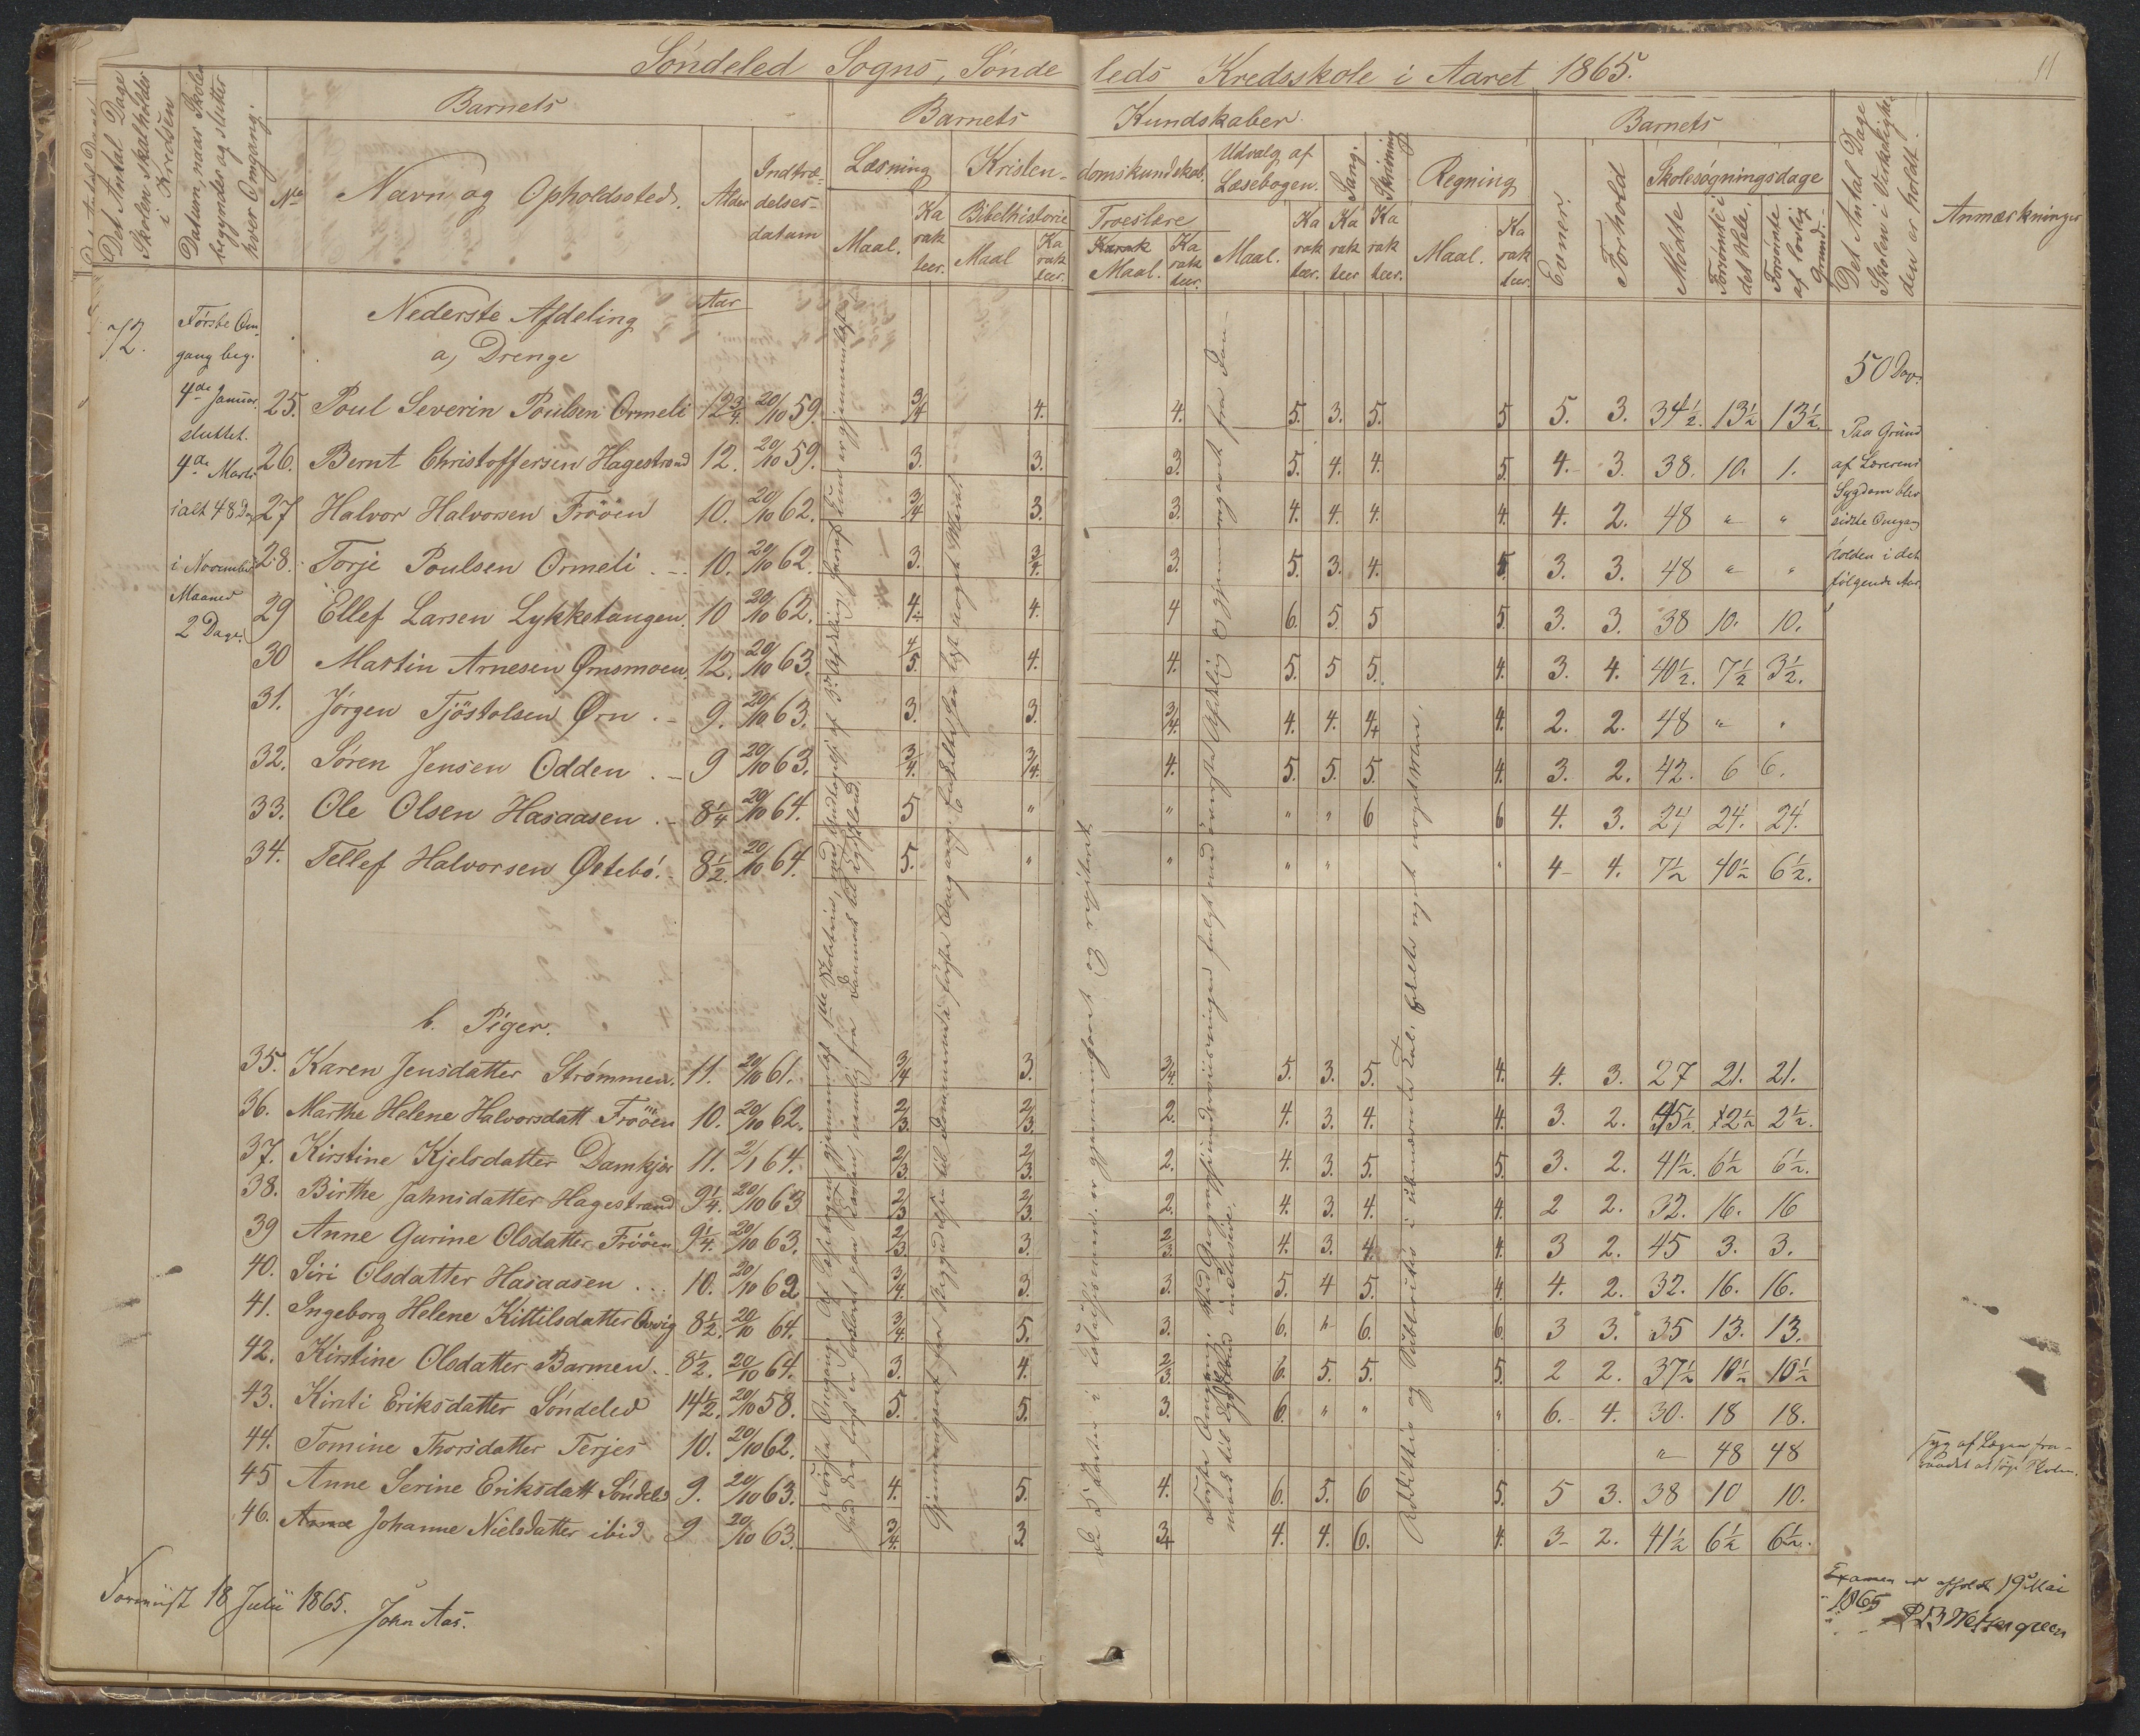 Söndeled Sogns, Sönde leds Kredsskole i Aaret 1865.
11
Det Antal Dage Skolen skalholdes i Kredsen
Datum, naar Skolen begynder og slutter hver Omgang.
Barnets
No
Navn og Opholdssted.
Alder
Indtrædelsesdatum
Barnets Kundskaber
Læsning
Maal.
Karakteer.
Kristendomskundskab.
Bibelhistorie
Maal
Karakteer.
Troeslære
Maal.
Karakteer.
Udvalg af Læsebogen.
Maal.
Karakteer.
Sang.
Karakteer
Skrivning
Karakteer.
Regning
Maal.
Karakteer.
Barnets
Evner.
Forhold
Skolesögningsdage
Mödte
Forsömte i det Hele.
Forsömte af lovlig Grund.
Det Antal Dage Skolen i Virkeligheden er holdt.
Anmærkninger
72.
Förste Omgang beg.
4de Januar.
sluttet.
4de Marts
ialt 48 Dag
i November
Maaned
2 Dage.
Nederste Afdeling
Aar
a, Drenge
25. Poul Severin Poulsen Ormeli 12 3/4. 20/10 59. 3/4 4. 4. 5. 3. 5. 5 5. 3. 34 1/2. 13 1/2 13 1/2.
26. Bernt Christoffersen Hagestrand 12. 20/10 59. 3. 3. 3. 5. 4. 4. 5. 4. 3. 38. 10. 1.
27 Halvor Halvorsen Frööen 10. 20/10 62. 3/4 3. 3. 4. 4. 4. 4. 4. 2. 48 " "
28. Torje Poulsen Ormeli 10. 20/10 62. 3. 3/4. 3. 5. 3. 4. 5. 3. 3. 48 " "
29 Ellef Larsen Lykketangen 10 20/10 62. 4. 4. 4 6. 5. 5 5. 3. 3. 38 10. 10.
30 Martin Arnesen Ørnsmoen 12. 20/10 63. 4/5. 4. 4. 5. 5 5. 4. 3. 4. 40 1/2. 7 1/2 3 1/2.
31. Jörgen Tjöstolsen Ørn 9. 20/10 63. 3. 3. 3/4. 4. 4. 4 4. 2. 2. 48 " "
32. Sören Jensen Odden 9 20/10 63. 3/4. 3/4. 4. 5. 5. 5. 4. 3. 2. 42. 6 6.
33. Ole Olsen Hasaasen 8 1/4 20/10 64. 5 " " " " 6 6 4. 3. 24 24. 24.
34. Tellef Halvorsen Østebö. 8 1/2. 20/10 64. 5. " " " " " 4 4. 7 1/2 40 1/2 6 1/2.
50 Dage
Paa Grund
af Lærerens
Sygdom blev
sidste Omgang
holden i det
fölgende Aar.
b. Piger.
35. Karen Jensdatter Strömmen. 11. 20/10 61. 3/4 3. 3/4. 5. 3. 5. 4. 4. 3. 27 21. 21.
36. Marthe Helene Halvorsdatt Frööen 10. 20/10 62. 2/3. 2/3. 2. 4. 3. 4. 4. 3. 2. 45 1/2. 2 1/2 2 1/2.
37. Kirstine Kjelsdatter Damkjær 11. 2/1 64. 2/3. 2/3. 2. 4. 3. 5. 5. 3. 2. 41 1/2. 6 1/2 6 1/2.
38. Birthe Jahnsdatter Hagestrand 9 1/4. 20/10 63 2/3. 2/3. 2. 4. 3. 4. 4. 2 2. 32. 16. 16
39 Anne Gurine Olsdatter Frööen 9 1/4. 20/10 63. 2/3 3. 2/3. 4. 3. 4. 4. 3 2. 45 3. 3.
40. Siri Olsdatter Hasaasen 10. 20/10 62 3/4. 3. 3. 5. 4 5. 4. 4. 2. 32. 16. 16.
41. Ingeborg Helene Kittilsdatter 8 1/2. 20/10 64. 3/4. 5. 3. 6. " 6. 6. 3 3. 35 13. 13.
42. Kirstine Olsdatter Barmen 8 1/2. 20/10 64. 3. 4. 2/3 6. 5. 5. 5. 2 2. 37 1/2 10 1/2 10 1/2
43. Kirsti Eriksdatter Söndeled 14 1/2. 20/10 58. 5. 5. 3. 6. " " " 6. 4. 30. 18 18.
44. Tomine Thorsdatter Terjes 10. 20/10 62. " 48 48
45 Anne Serine Eriksdatt Söndeled 9. 20/10 63. 4. 5. 4. 6. 5. 6 5. 5 3. 38 10 10.
46. Johanne Nielsdatter ibid 9 20/10 63. 3/4. 3 3/4 4. 4. 6. 4. 3 2. 41 1/2 6 1/2 6 1/2.
Syg af Lægen fraraadet at søge Skolen.
18 Julii 1865.
John Aas.
Examen er afholdt 19 Mai
1865